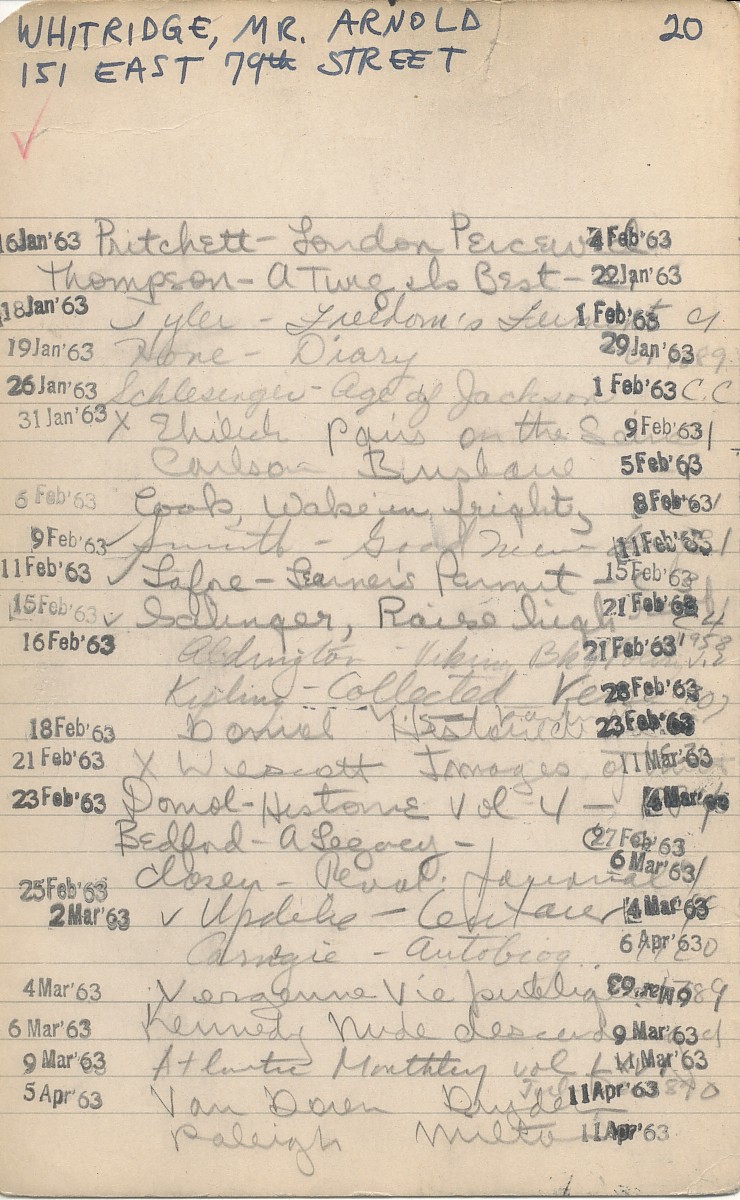 WHITRIDGE, MR. ARNOLD 20
151 EAST 79th STREET
16Jan'63 Pritchett - London Perceived 4Feb'63
Thompson - A Tune Is Best - 22Jan'63
18Jan'63 Tyler - Freedom's Ferment 1 Feb'63
19Jan'63 Hone - Diary 29Jan'63
26Jan'63 Schlesinger - Age of Jackson 1 Feb'63 C.C
31 Jan'63 X Ehrlich Paris on the 9Feb'63
Carlson Brisbane 5Feb'63
6 Feb'63 Cook, Wake in fright 8Feb'63
9Feb'63 Smith - Good 11Feb'63
11Feb'63 ✓ Lafore - Learner's Permit - 15Feb'63
15Feb'63 ✓ Salinger, Raise high 21Feb'63
16Feb'63 Aldington - Viking Bk 21Feb'63 1958
Kipling - Collected Verse 28Feb'63
18Feb'63 Domol Historie 23Feb'63
21 Feb'63 X Wescott Images of 11Mar'63
23Feb'63 Domol - Historie Vol - 4 - 4Mar'63
Bedford - A Legacy - 27Feb'63
25Feb'63 Closen - Royal. journal 6 Mar'63
2Mar'63 ✓ Updike - Centaur 4Mar'63
Carnegie - Autobiog 6 Apr'63
4Mar'63 Vergenne Vie 6Mar'63
6 Mar'63 Kennedy Nude 9Mar'63
9Mar'63 Atlantic Monthly vol 11Mar'63
5 Apr'63 Van Doren Dryden 11Apr'63
Raleigh Milton 11Apr'63